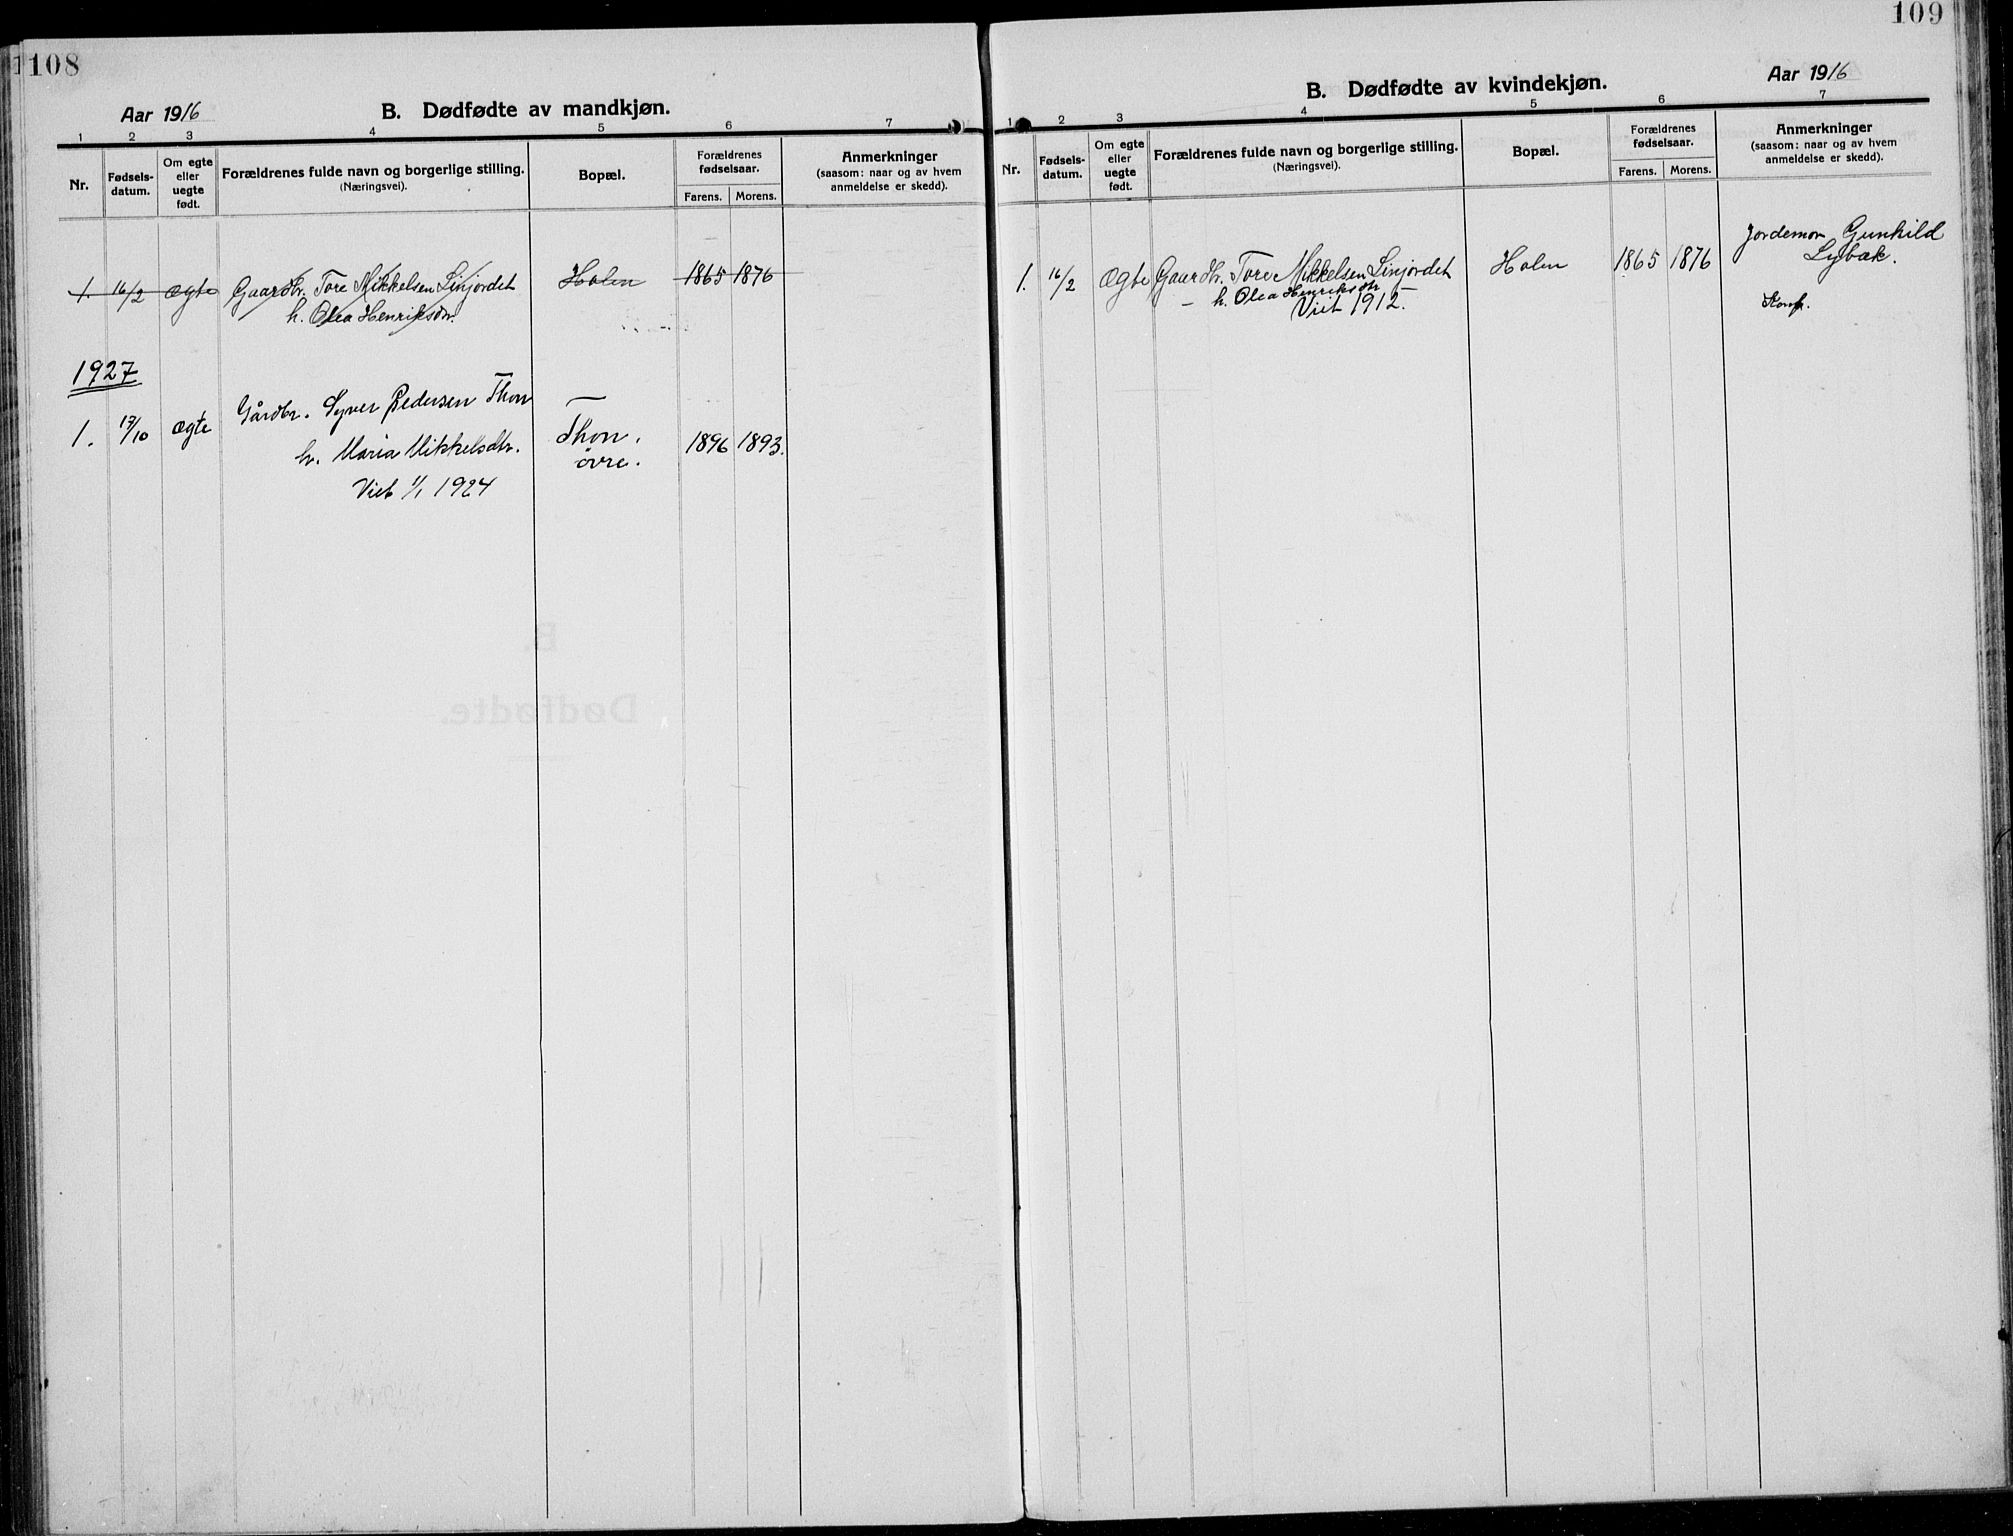 108
Aar 1916
B. Dødfødte av mandkjøn.
1 2 3 4 5 6 7
Nr.
Fødsels-
datum.
Om egte
eller
uegte
født.
Forældrenes fulde navn og borgerlige stilling.
(Næringsvei).
Bopæl.
Forældrenes
fødselsaar.
Farens. Morens.
Anmerkninger
(saasom: naar og av hvem
anmeldelse er skedd).
1. 16/2 ægte Gaardbr. Tore Mikkelsen Linjordet Holen 1865 1876
h. Olea Henriksdtr.
1927
1. 17/10 ægte Gårdbr. Syver Pedersen Thon Thon, 1896 1893.
h. Maria Mikkelsdtr. övre.
Viet 1/1 1924
109
Aar 1916
B. Dødfødte av kvindekjøn.
1 2 3 4 5 6 7
Nr.
Fødsels-
datum.
Om egte
eller
uegte
født.
Forældrenes fulde navn og borgerlige stilling.
(Næringsvei).
Bopæl.
Forældrenes
fødselsaar.
Farens. Morens.
Anmerkninger
(saasom: naar og av hvem
anmeldelse er skedd).
1. 16/2 Ægte Gaardbr. Tore Mikkelsen Linjordet Holen 1865 1876 Jordemor Gunhild
Lybæk.
– h. Olea Henriksdtr
Viet 1912.
Konf.
B.
Dødfødte.